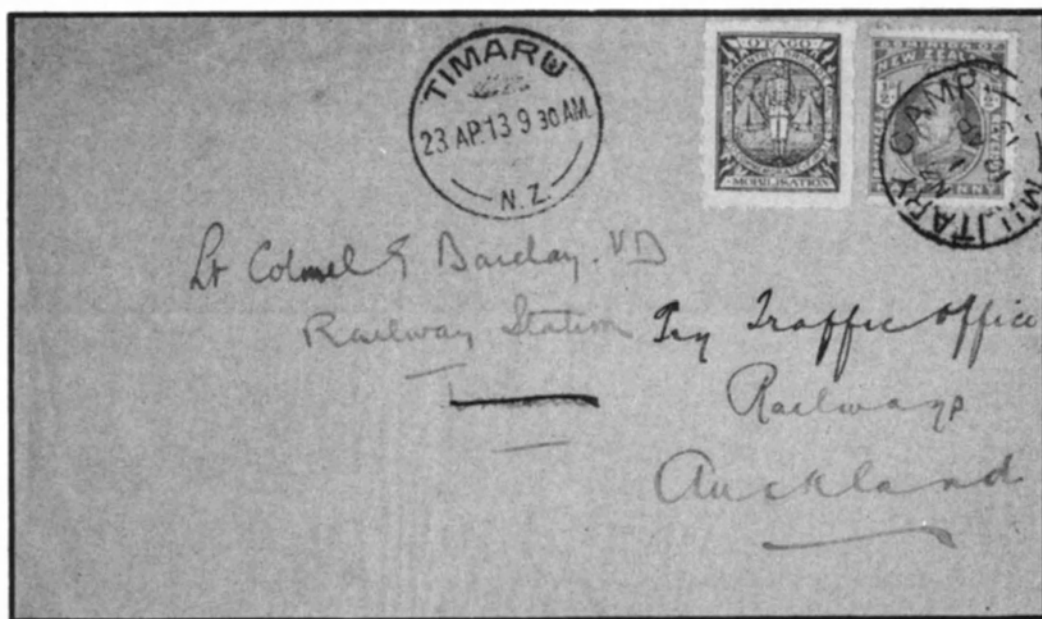 TIMARU
23 AP.13 9 30 AM.
N.Z.
OTAGO
MOBILISATION
DOMINION OF
NEW ZEALAND
½ ½
PENNY
MILITARY CAMP
Lt Colonel G Barclay. VD
Railway Station
Try Traffic Office
Railways
Auckland